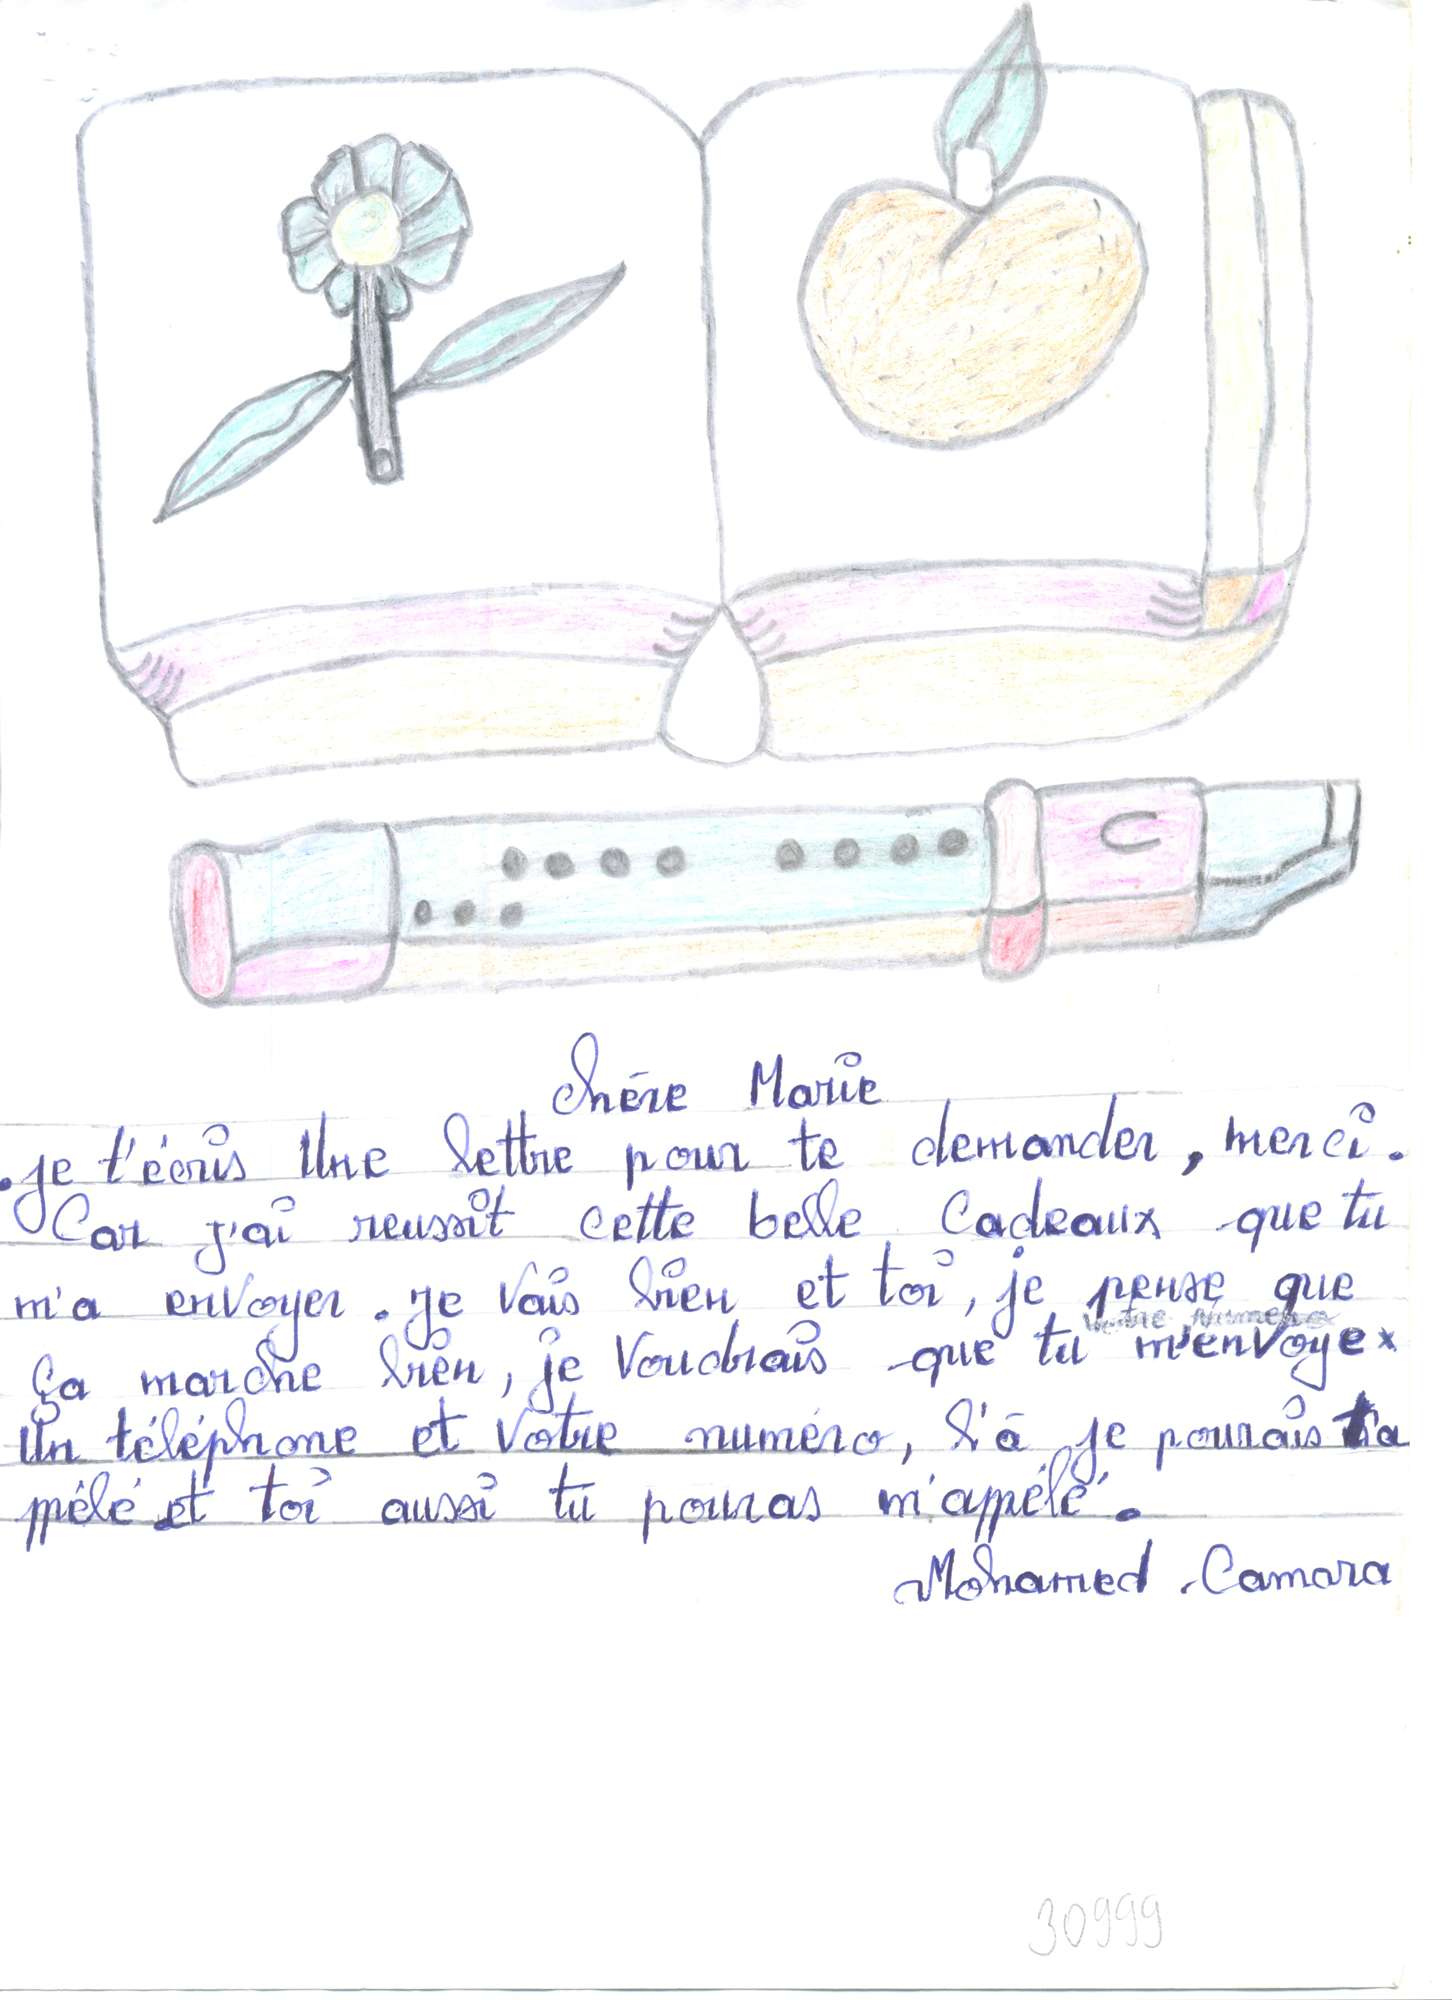 Chére Marie
.je t'écris Une lettre pour te demander, merci.
Car j'ai reussit cette belle Cadeaux que tu
m'a envoyer. Je vais bien et toi, je pense que
votre numero
ça marche bien, je Voudrais que tu m'envoyex
Un téléphone et Votre numéro, l'á je pourais t'a
ppélé et toi aussi tu pouras m'appélé.
Mohamed. Camara
30999